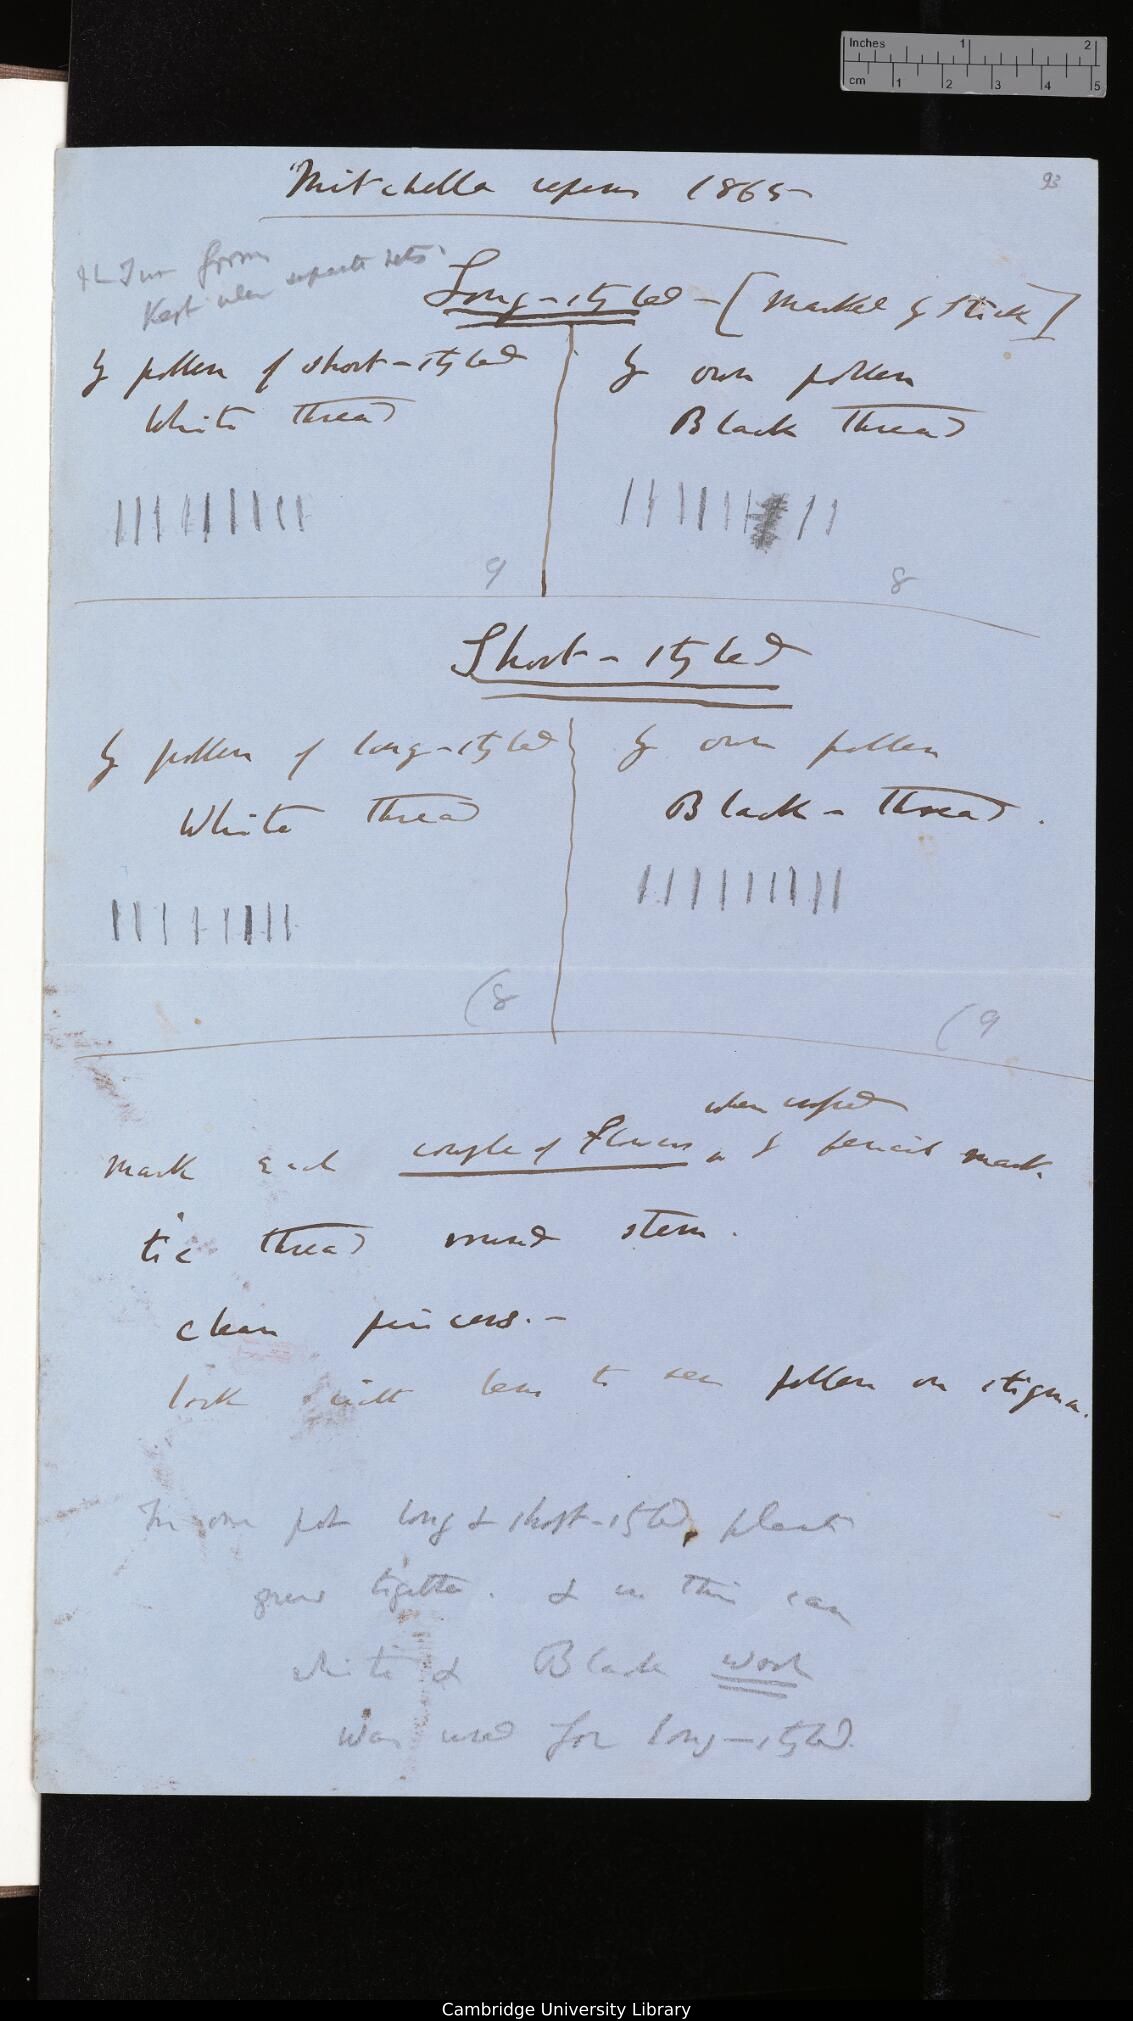 Inches 1 2
cm 1 2 3 4 5
93
Mitchella repens 1865
Two forms
Kept when separate sets
Long-styled - [marked by stick]
by pollen of short-styled
White thread
by own pollen
Black thread
9
8
Short-styled
by pollen of long-styled
White thread
by own pollen
Black-thread.
(8
(9
when crossed
mark each couple of flowers by pencil mark.
tie thread round stem.
clean pincers.-
look with lens to see pollen on stigma.
In one pot long & short-styled plants
grew together. & in this case
white & Black wool
was used for long-styled.
Cambridge University Library